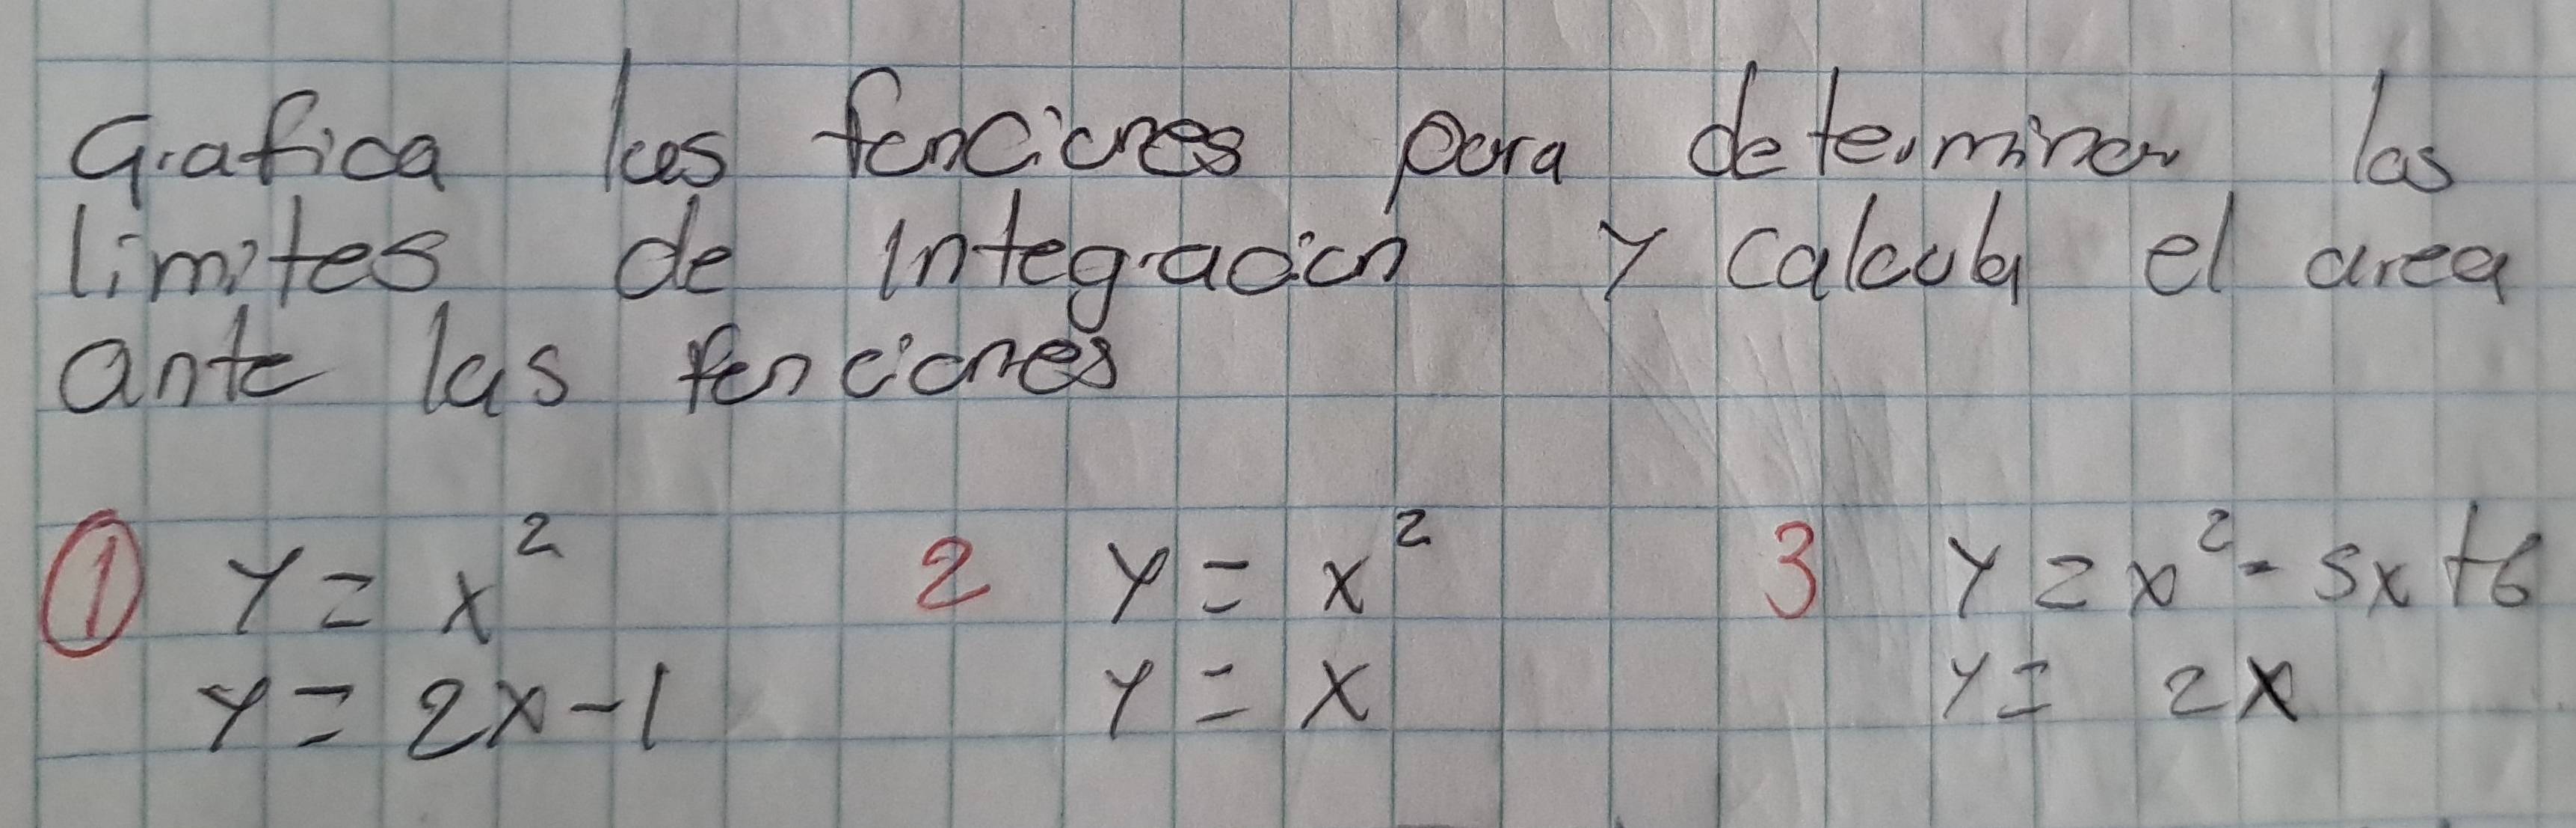 Grafica las funciones para determinar los
limites de integración y calcula el area
ante las funciones
1 y = x² 2 y = x² 3 y = x² - 5x + 6
y = 2x - 1 y = x y = 2x